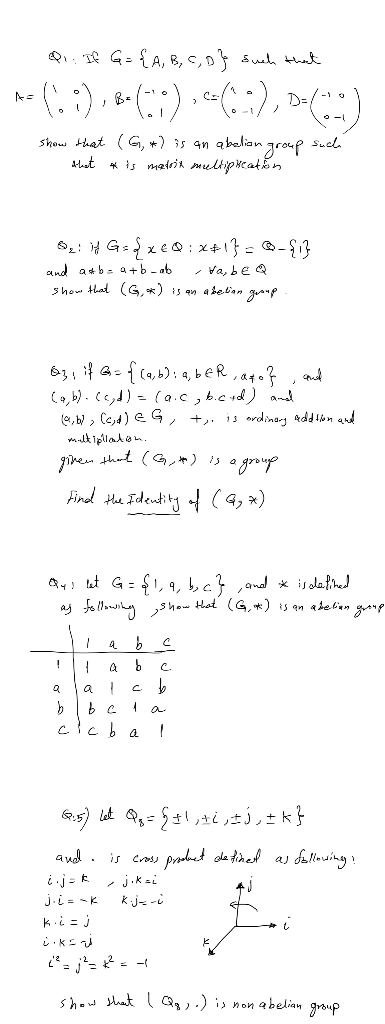 Q1: If G = {A, B, C, D} such that
A = (1 0 0 1), B = (-1 0 0 1), C = (1 0 0 -1), D = (-1 0 0 -1)
show that (G, *) is an abelian group such
that * is matrix multiplication
Q2: if G = {x ∈ Q : x ≠ 1} = Q - {1}
and a * b = a + b - ab , ∀a, b ∈ Q
show that (G, *) is an abelian group.
Q3: if G = {(a,b) : a, b ∈ R, a ≠ 0} , and
(a,b) . (c,d) = (a.c , b.c + d) and
(a,b), (c,d) ∈ G , +, . is ordinary addition and
multiplication.
given that (G, *) is a group
Find the Identity of (G, *)
Q4: let G = {1, a, b, c} , and * is defined
as following , show that (G, *) is an abelian group
1 a b c
1 1 a b c
a a 1 c b
b b c 1 a
c c b a 1
Q.5) let Q8 = {±1, ±i, ±j, ±k}
and . is cross product defined as following:
i.j = k , j.k = i
j.i = -k k.j = -i
k.i = j
i.k = -j
i² = j² = k² = -1
j
i
k
show that (Q8, .) is non abelian group